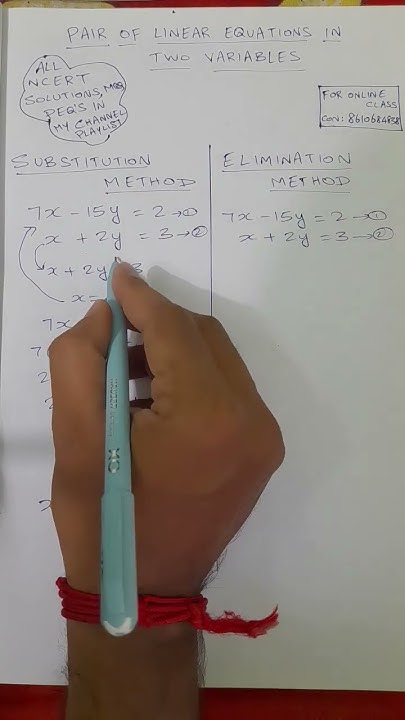 PAIR OF LINEAR EQUATIONS IN
TWO VARIABLES
ALL
NCERT
SOLUTIONS, MCQ,
PEQ'S IN
MY CHANNEL
PLAYLIST
FOR ONLINE
CLASS
CON: 8610684838
SUBSTITUTION
METHOD
7x - 15y = 2 → ①
x + 2y = 3 → ②
x + 2y 3
x =
7x
7
2
x
ELIMINATION
METHOD
7x - 15y = 2 → ①
x + 2y = 3 → ②